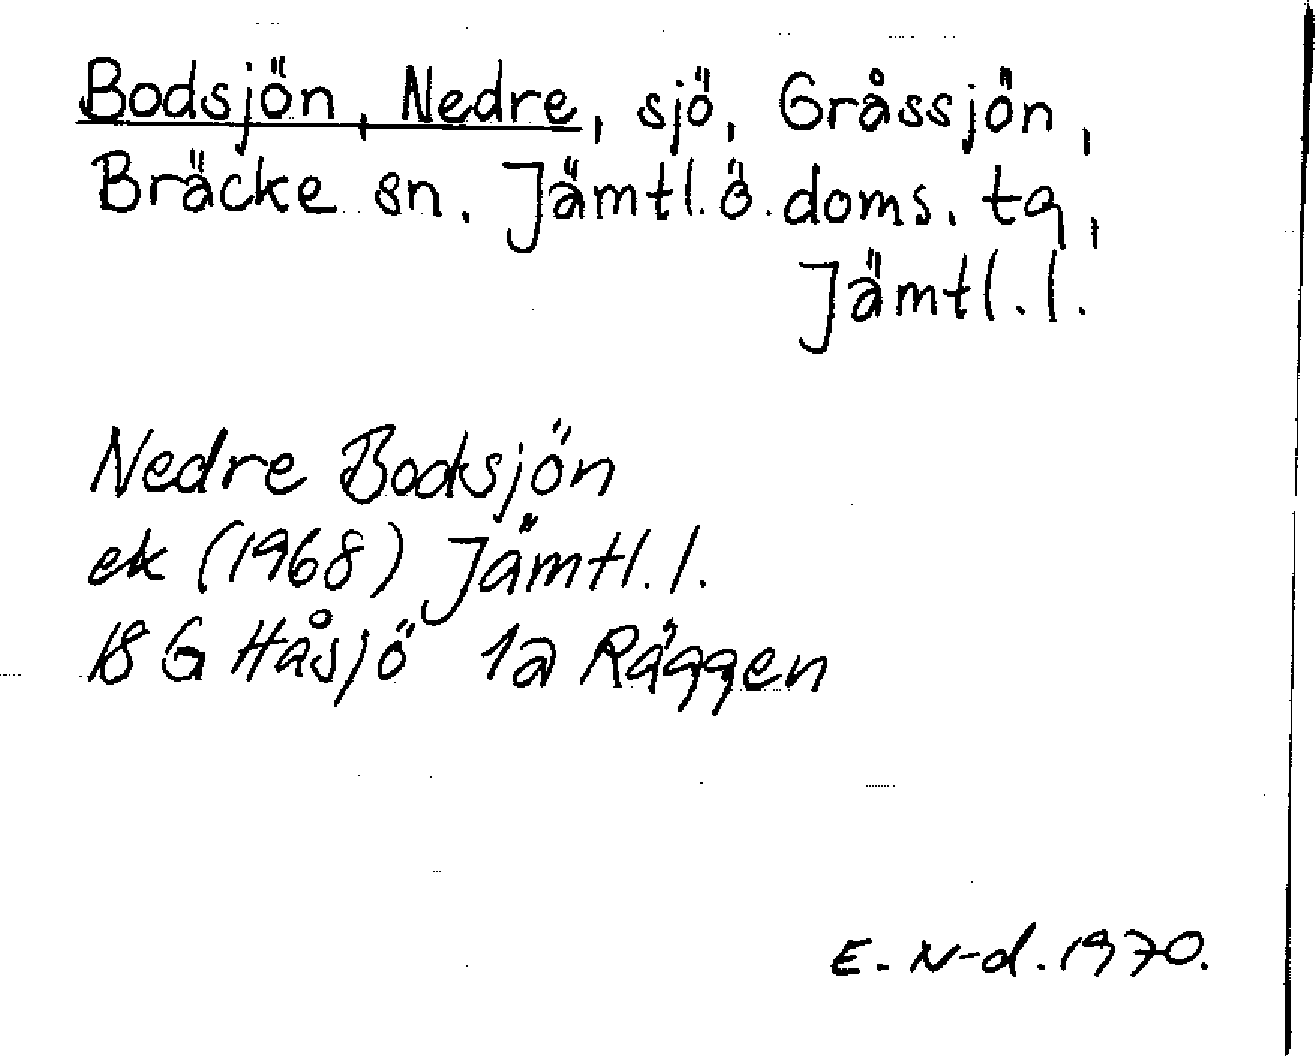 Bodsjön, Nedre, sjö, Gråssjön,
Bräcke sn. Jämtl. ö. doms. tg,
Jämtl. l.
Nedre Bodsjön
ek (1968) Jämtl. l.
18 G Håsjö 1a Räggen
E. N-d. 1970.